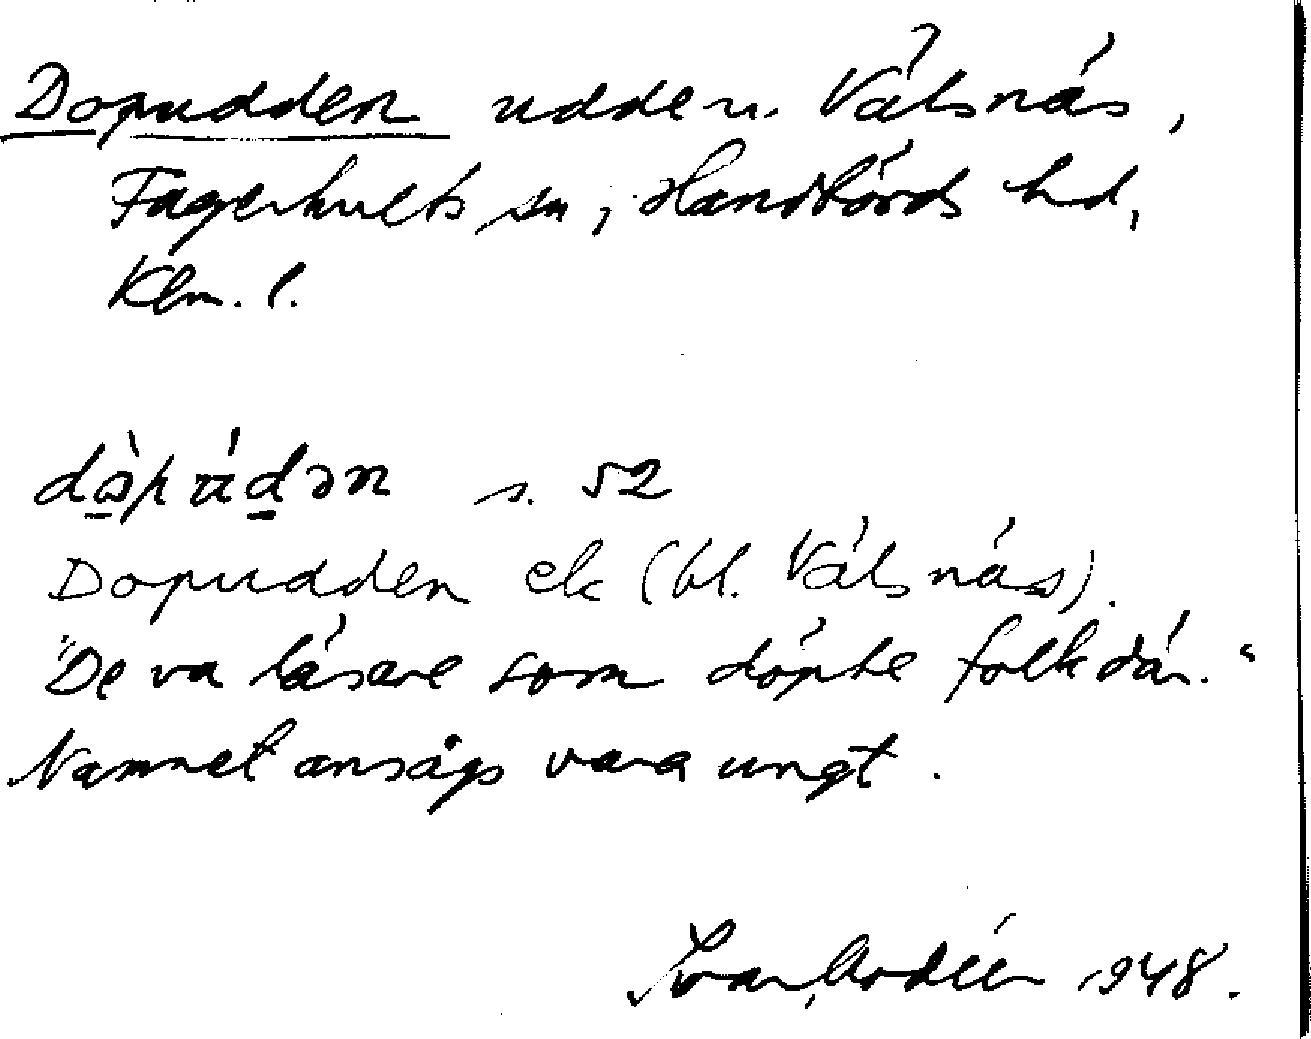 Dopudden udde u. Välsnäs,
Fagerhults sn, Handbörds hd,
Klm. l.
dɷ̀pɯ́dən s. 52
Dopudden ek (bl. Välsnäs).
"De va läsare som döpte folk där."
Namnet ansågs vara ungt.
Ivar Modéer 1948.